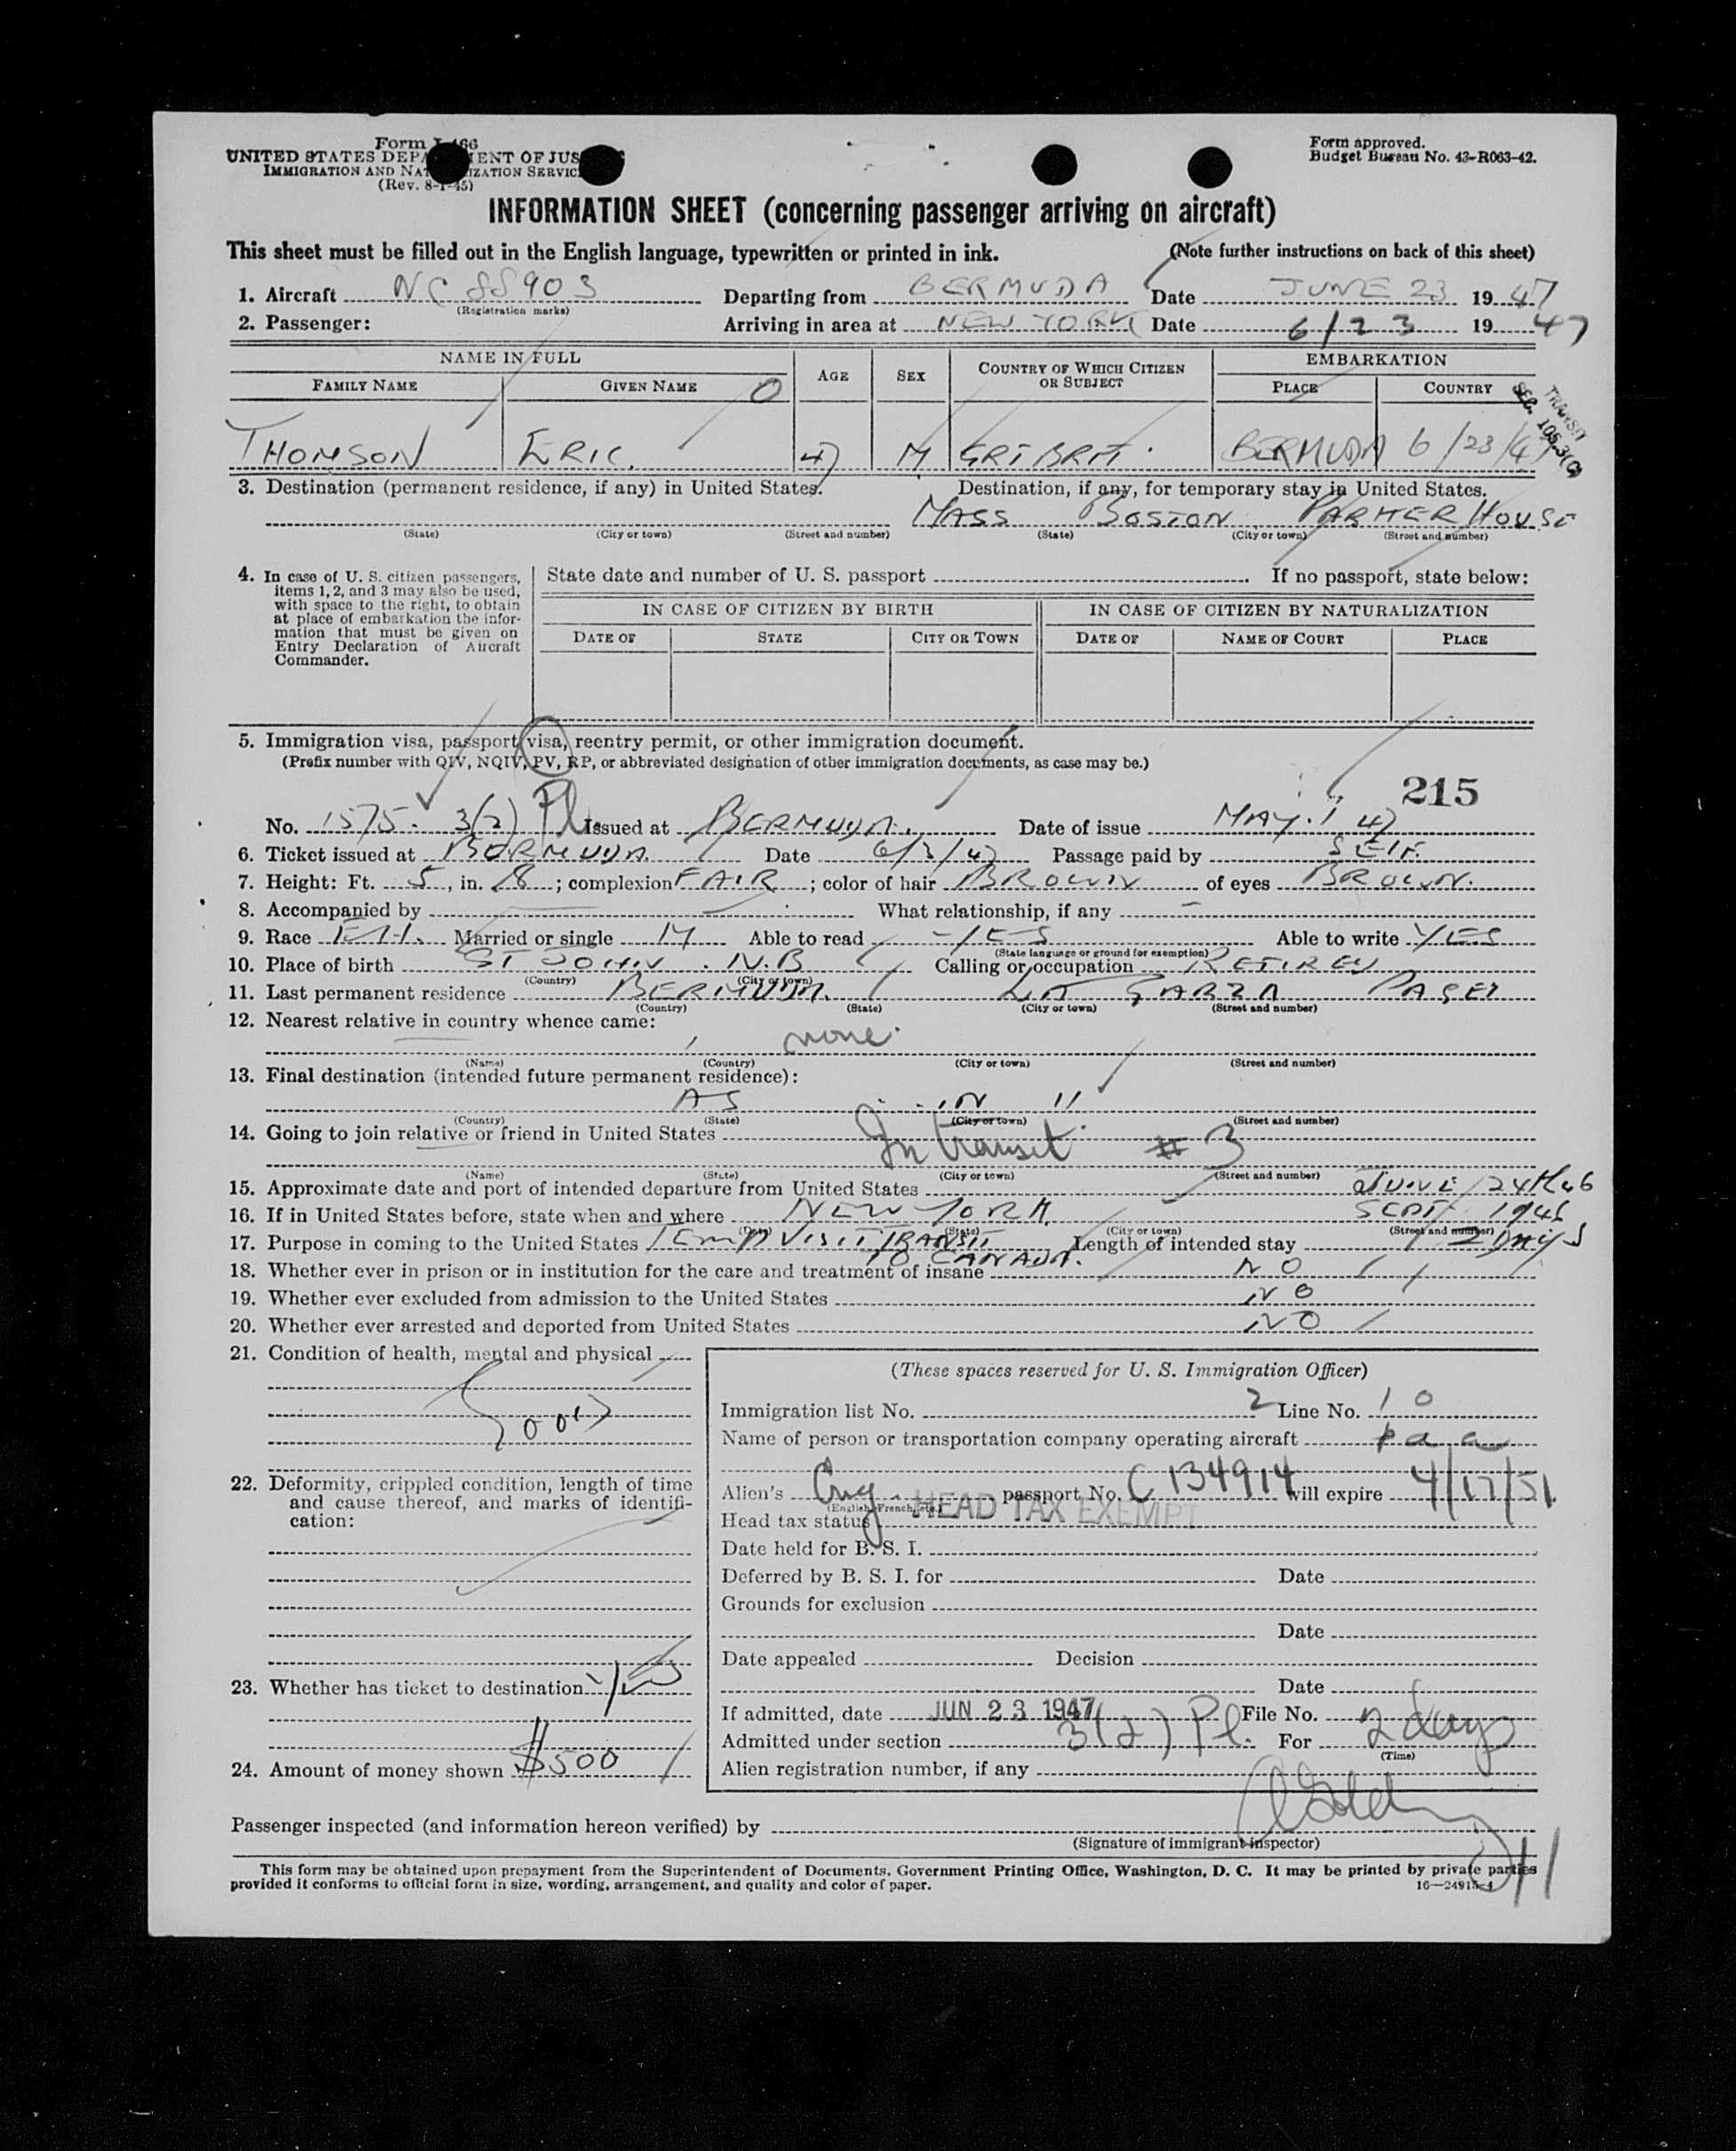 Form I-466
UNITED STATES DEPA ENT OF JUS
IMMIGRATION AND NAT IZATION SERVIC
(Rev. 8-1-45)
Form approved.
Budget Bureau No. 43-R063-42.
INFORMATION SHEET (concerning passenger arriving on aircraft)
This sheet must be filled out in the English language, typewritten or printed in ink. (Note further instructions on back of this sheet)
1. Aircraft NC 88903 Departing from BERMUDA Date JUNE 23 1947
(Registration marks)
2. Passenger: Arriving in area at NEW YORK Date 6/23 1947
NAME IN FULL AGE SEX COUNTRY OF WHICH CITIZEN OR SUBJECT EMBARKATION
FAMILY NAME GIVEN NAME PLACE COUNTRY
0
TRANSIT
SEC. 105.3(C)
THOMSON ERIC. 47 M GRT BRIT. BERMUDA 6/23/47
3. Destination (permanent residence, if any) in United States. Destination, if any, for temporary stay in United States.
MASS BOSTON PARKER HOUSE
(State) (City or town) (Street and number) (State) (City or town) (Street and number)
4. In case of U. S. citizen passengers, items 1, 2, and 3 may also be used, with space to the right, to obtain at place of embarkation the information that must be given on Entry Declaration of Aircraft Commander.
State date and number of U. S. passport If no passport, state below:
IN CASE OF CITIZEN BY BIRTH IN CASE OF CITIZEN BY NATURALIZATION
DATE OF STATE CITY OR TOWN DATE OF NAME OF COURT PLACE
5. Immigration visa, passport visa, reentry permit, or other immigration document.
(Prefix number with QIV, NQIV, PV, RP, or abbreviated designation of other immigration documents, as case may be.)
215
No. 1575. 3(2) Pl Issued at BERMUDA. Date of issue MAY. 1 47
6. Ticket issued at BERMUDA Date 6/3/47 Passage paid by SELF.
7. Height: Ft. 5, in. 8; complexion FAIR; color of hair BROWN of eyes BROWN.
8. Accompanied by — What relationship, if any —
9. Race Married or single M Able to read YES Able to write YES
(State language or ground for exemption)
10. Place of birth ST JOHN. N.B Calling or occupation RETIRED
(Country) (City or town)
11. Last permanent residence BERMUDA. LA GARZA PAGET
(Country) (State) (City or town) (Street and number)
12. Nearest relative in country whence came:
none.
(Name) (Country) (City or town) (Street and number)
13. Final destination (intended future permanent residence):
AS IN 11
(Country) (State) (City or town) (Street and number)
14. Going to join relative or friend in United States
In transit # 3
(Name) (State) (City or town) (Street and number)
15. Approximate date and port of intended departure from United States JUNE 24th 46
16. If in United States before, state when and where NEW YORK. SEPT 1946
(Date) (State) (City or town) (Street and number)
17. Purpose in coming to the United States TEMP VISIT TRANSIT TO CANADA. Length of intended stay 2 DAYS
18. Whether ever in prison or in institution for the care and treatment of insane NO
19. Whether ever excluded from admission to the United States NO
20. Whether ever arrested and deported from United States NO
21. Condition of health, mental and physical
GOOD
22. Deformity, crippled condition, length of time and cause thereof, and marks of identification:
23. Whether has ticket to destination YES
24. Amount of money shown $500
(These spaces reserved for U. S. Immigration Officer)
Immigration list No. 2 Line No. 10
Name of person or transportation company operating aircraft paa
Alien's Eng. passport No. C 134914 will expire 4/17/51
(English, French, etc.)
Head tax status HEAD TAX EXEMPT
Date held for B. S. I.
Deferred by B. S. I. for Date
Grounds for exclusion
Date
Date appealed Decision
Date
If admitted, date JUN 23 1947 File No.
Admitted under section 3(2) Pl. For 2 days
(Time)
Alien registration number, if any
Passenger inspected (and information hereon verified) by
(Signature of immigrant inspector)
This form may be obtained upon prepayment from the Superintendent of Documents, Government Printing Office, Washington, D. C. It may be printed by private parties
provided it conforms to official form in size, wording, arrangement, and quality and color of paper. 16—24915-1